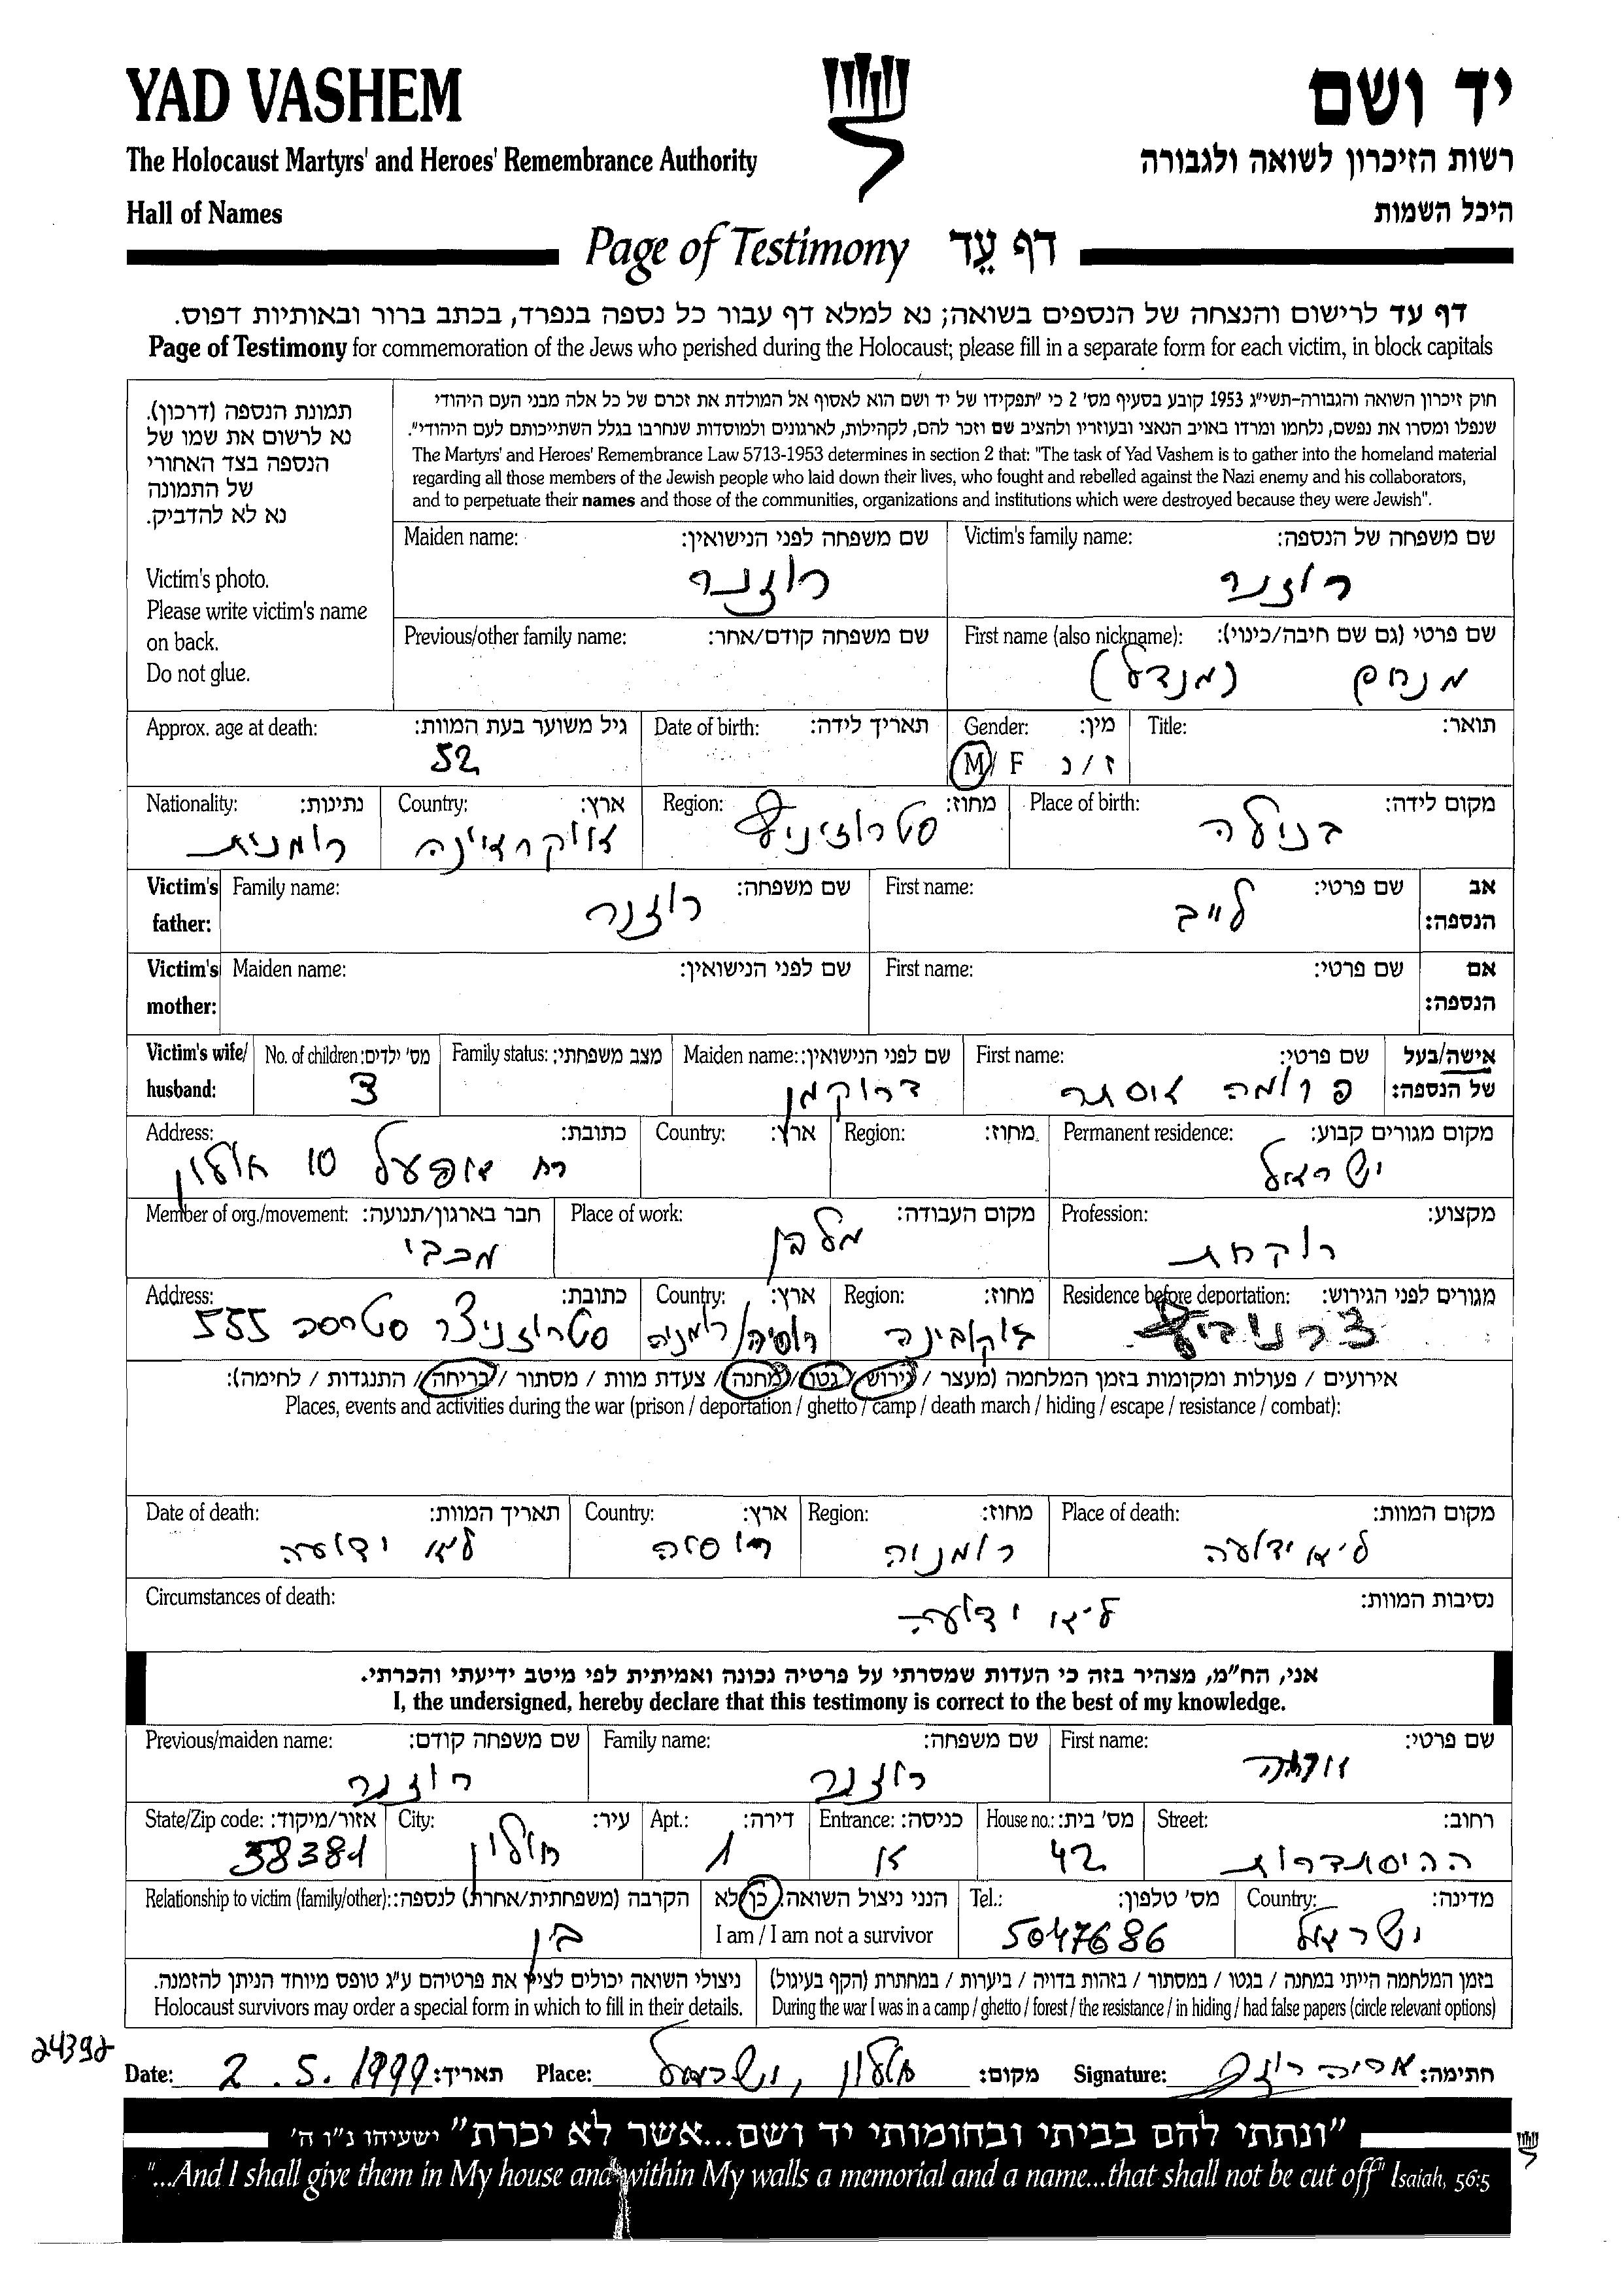 YAD VASHEM
יד ושם
The Holocaust Martyrs' and Heroes' Remembrance Authority
רשות הזיכרון לשואה ולגבורה
Hall of Names
היכל השמות
Page of Testimony דף עֵד
דף עד לרישום והנצחה של הנספים בשואה; נא למלא דף עבור כל נספה בנפרד, בכתב ברור ובאותיות דפוס.
Page of Testimony for commemoration of the Jews who perished during the Holocaust; please fill in a separate form for each victim, in block capitals
חוק זיכרון השואה והגבורה-תשי"ג 1953 קובע בסעיף מס' 2 כי "תפקידו של יד ושם הוא לאסוף אל המולדת את זכרם של כל אלה מבני העם היהודי
שנפלו ומסרו את נפשם, נלחמו ומרדו באויב הנאצי ובעוזריו ולהציב שם וזכר להם, לקהילות, לארגונים ולמוסדות שנחרבו בגלל השתייכותם לעם היהודי".
The Martyrs' and Heroes' Remembrance Law 5713-1953 determines in section 2 that: "The task of Yad Vashem is to gather into the homeland material
regarding all those members of the Jewish people who laid down their lives, who fought and rebelled against the Nazi enemy and his collaborators,
and to perpetuate their names and those of the communities, organizations and institutions which were destroyed because they were Jewish".
תמונת הנספה (דרכון).
נא לרשום את שמו של
הנספה בצד האחורי
של התמונה
נא לא להדביק.
Victim's photo.
Please write victim's name
on back.
Do not glue.
Victim's family name: שם משפחה של הנספה:
רוזנר
Maiden name: שם משפחה לפני הנישואין:
רוזנר
First name (also nickname): שם פרטי (גם שם חיבה/כינוי):
מנחם (מנדל)
Previous/other family name: שם משפחה קודם/אחר:
Title: תואר:
Gender: מין:
M/ F ז / נ
Date of birth: תאריך לידה:
Approx. age at death: גיל משוער בעת המוות:
52
Place of birth: מקום לידה:
בנילה
Region: מחוז:
סטרוזיניץ
Country: ארץ:
אוקראינה
Nationality: נתינות:
רומנית
Victim's father: אב הנספה:
First name: שם פרטי:
לייב
Family name: שם משפחה:
רוזנר
Victim's mother: אם הנספה:
First name: שם פרטי:
Maiden name: שם לפני הנישואין:
Victim's wife/ husband: אישה/בעל של הנספה:
First name: שם פרטי:
פרומה אסתר
Maiden name: שם לפני הנישואין:
דרוקמן
Family status: מצב משפחתי:
No. of children: מס' ילדים:
3
Permanent residence: מקום מגורים קבוע:
ישראל
Region: מחוז:
Country: ארץ:
Address: כתובת:
10 חולון
Profession: מקצוע:
רוקחת
Place of work: מקום העבודה:
מלבן
Member of org./movement: חבר בארגון/תנועה:
מכבי
Residence before deportation: מגורים לפני הגירוש:
צרנוביץ
Region: מחוז:
בוקובינה
Country: ארץ:
רוסיה/רומניה
Address: כתובת:
סטרוזניצר סטרסה 555
אירועים / פעולות ומקומות בזמן המלחמה (מעצר / גירוש / גטו / מחנה / צעדת מוות / מסתור / בריחה / התנגדות / לחימה):
Places, events and activities during the war (prison / deportation / ghetto / camp / death march / hiding / escape / resistance / combat):
Place of death: מקום המוות:
לא ידועה
Region: מחוז:
רומניה
Country: ארץ:
רוסיה
Date of death: תאריך המוות:
לא ידועה
Circumstances of death: נסיבות המוות:
לא ידועה
אני, הח"מ, מצהיר בזה כי העדות שמסרתי על פרטיה נכונה ואמיתית לפי מיטב ידיעתי והכרתי.
I, the undersigned, hereby declare that this testimony is correct to the best of my knowledge.
First name: שם פרטי:
Family name: שם משפחה:
רוזנר
Previous/maiden name: שם משפחה קודם:
רוזנר
Street: רחוב:
ההיסתדרות
House no.: מס' בית:
42
Entrance: כניסה:
א
Apt.: דירה:
1
City: עיר:
חולון
State/Zip code: אזור/מיקוד:
58381
Country: מדינה:
ישראל
Tel.: מס' טלפון:
5047686
הנני ניצול השואה: כן לא
I am / I am not a survivor
Relationship to victim (family/other): הקרבה (משפחתית/אחרת) לנספה:
בן
בזמן המלחמה הייתי במחנה / בגטו / במסתור / בזהות בדויה / ביערות / במחתרת (הקף בעיגול)
During the war I was in a camp / ghetto / forest / the resistance / in hiding / had false papers (circle relevant options)
ניצולי השואה יכולים לציין את פרטיהם ע"ג טופס מיוחד הניתן להזמנה.
Holocaust survivors may order a special form in which to fill in their details.
24392
Date: 2.5.1999 תאריך: Place: חולון, ישראל מקום: Signature: אריה רוזנר חתימה:
"ונתתי להם בביתי ובחומותי יד ושם...אשר לא יכרת" ישעיהו נ"ו ה'
"...And I shall give them in My house and within My walls a memorial and a name...that shall not be cut off" Isaiah, 56:5